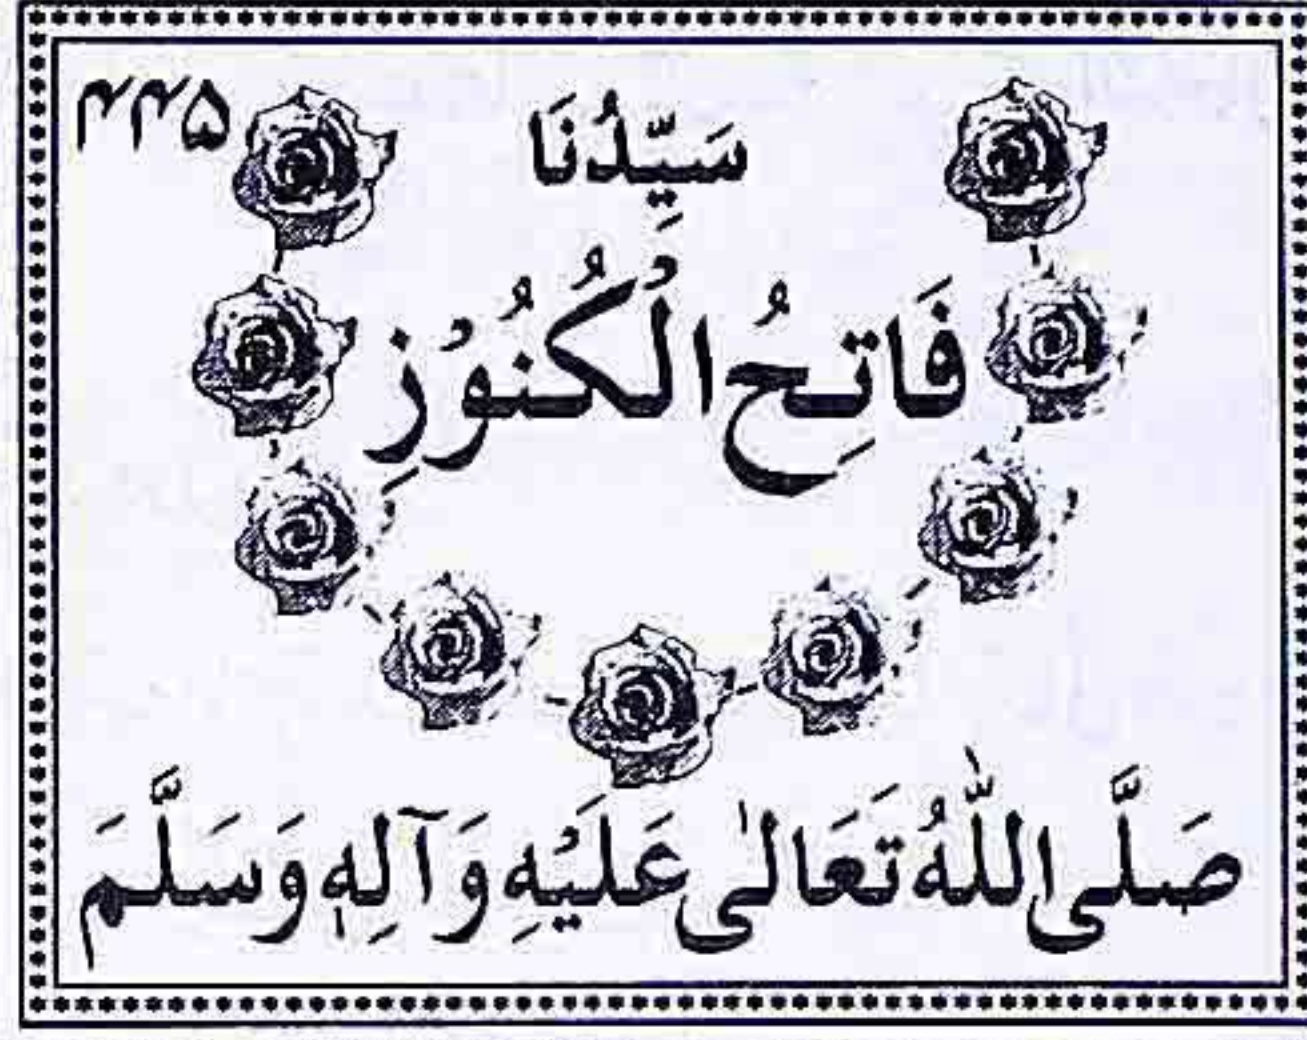 ۴۴۵
سَيِّدُنَا
فَاتِحُ الْكُنُوْزِ
صَلَّى اللّٰهُ تَعَالٰى عَلَيْهِ وَآلِهٖ وَسَلَّمَ